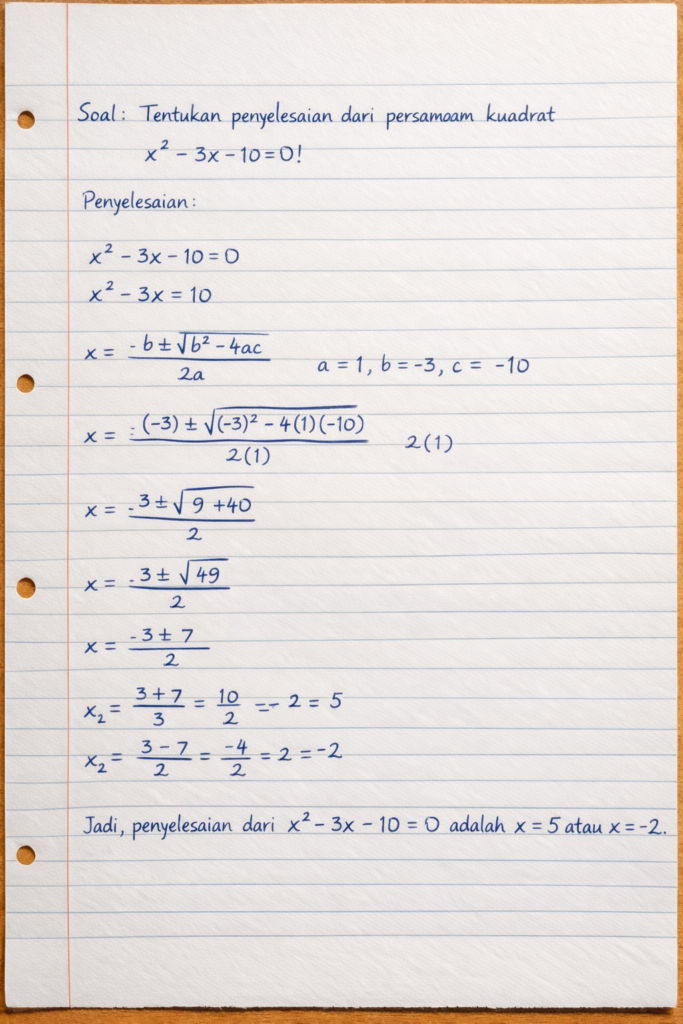 Soal: Tentukan penyelesaian dari persamaam kuadrat
x² - 3x - 10 = 0!
Penyelesaian:
x² - 3x - 10 = 0
x² - 3x = 10
x = (-b ± √(b² - 4ac)) / 2a    a = 1, b = -3, c = -10
x = (-(-3) ± √((-3)² - 4(1)(-10))) / 2(1)    2(1)
x = (-3 ± √(9 + 40)) / 2
x = (-3 ± √49) / 2
x = (-3 ± 7) / 2
x₂ = (3 + 7) / 3 = 10 / 2 =- 2 = 5
x₂ = (3 - 7) / 2 = -4 / 2 = 2 = -2
Jadi, penyelesaian dari x² - 3x - 10 = 0 adalah x = 5 atau x = -2.